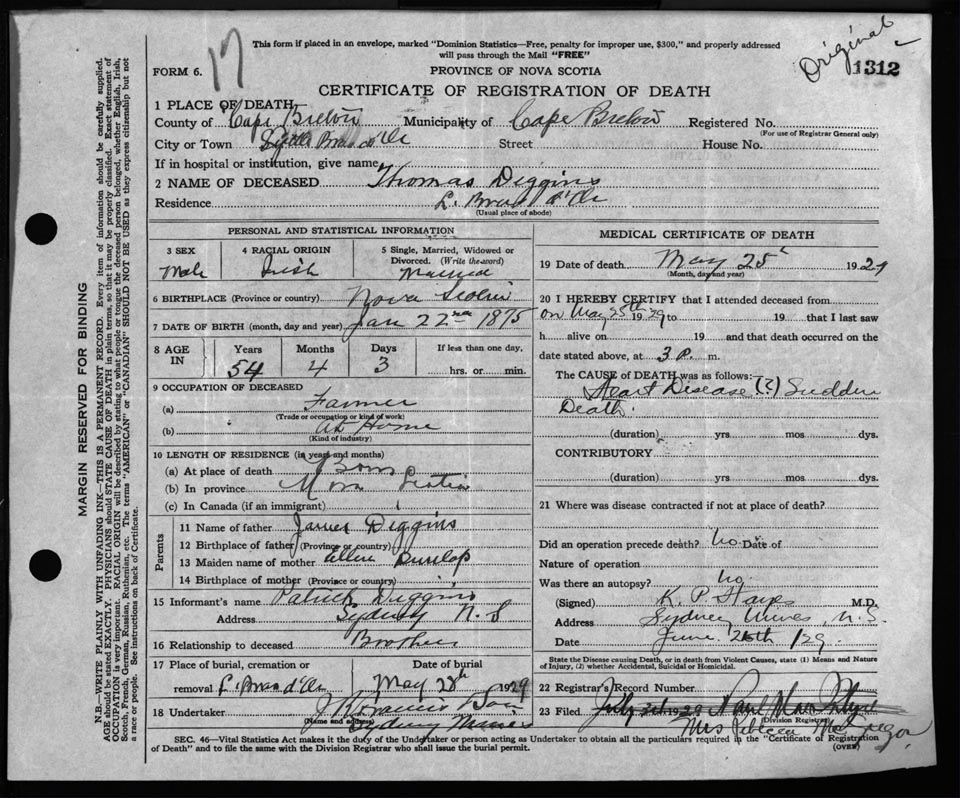 17
Original
This form if placed in an envelope, marked "Dominion Statistics—Free, penalty for improper use, $300," and properly addressed
will pass through the Mail "FREE"
FORM 6.
PROVINCE OF NOVA SCOTIA
1312
CERTIFICATE OF REGISTRATION OF DEATH
1 PLACE OF DEATH
County of Cape Breton Municipality of Cape Breton Registered No.
(For use of Registrar General only)
City or Town Little Bras d'Or Street House No.
If in hospital or institution, give name
2 NAME OF DECEASED Thomas Diggins
Residence L. Bras d'Or
(Usual place of abode)
PERSONAL AND STATISTICAL INFORMATION
3 SEX Male
4 RACIAL ORIGIN Irish
5 Single, Married, Widowed or Divorced. (Write the word) Married
6 BIRTHPLACE (Province or country) Nova Scotia
7 DATE OF BIRTH (month, day and year) Jan 22nd 1875
8 AGE IN Years 54 Months 4 Days 3 If less than one day, hrs. or min.
9 OCCUPATION OF DECEASED
(a) Farmer
(Trade or occupation or kind of work)
(b) At Home
(Kind of industry)
10 LENGTH OF RESIDENCE (in years and months)
(a) At place of death Born
(b) In province Nova Scotia
(c) In Canada (if an immigrant)
Parents
11 Name of father James Diggins
12 Birthplace of father (Province or country)
13 Maiden name of mother Ellen Dunlap
14 Birthplace of mother (Province or country)
15 Informant's name Patrick Diggins
Address Sydney N.S
16 Relationship to deceased Brother
17 Place of burial, cremation or removal L. Bras d'Or
Date of burial May 28th 1929
18 Undertaker J R Francis
(Name and address) Sydney Mines
MEDICAL CERTIFICATE OF DEATH
19 Date of death May 25 1929
(Month, day and year)
20 I HEREBY CERTIFY that I attended deceased from
on May 25th 1929 to 19 that I last saw
h alive on 19 and that death occurred on the
date stated above, at 3 P. m.
The CAUSE of DEATH was as follows:—
Heart Disease (?) Sudden
Death.
(duration) yrs mos dys.
CONTRIBUTORY
(duration) yrs mos dys.
21 Where was disease contracted if not at place of death?
Did an operation precede death? No Date of
Nature of operation
Was there an autopsy? No.
(Signed) K. P. Hayes M.D.
Address Sydney Mines, N.S.
Date June 26th /29
State the Disease causing Death, or in death from Violent Causes, state (1) Means and Nature
of Injury, (2) whether Accidental, Suicidal or Homicidal.
22 Registrar's Record Number
23 Filed July 1929
Division Registrar
Mrs Rebecca McGregor
SEC. 46—Vital Statistics Act makes it the duty of the Undertaker or person acting as Undertaker to obtain all the particulars required in the "Certificate of Registration
of Death" and to file the same with the Division Registrar who shall issue the burial permit.
(OVER)
MARGIN RESERVED FOR BINDING
N.B.—WRITE PLAINLY WITH UNFADING INK—THIS IS A PERMANENT RECORD. Every item of information should be carefully supplied.
AGE should be stated EXACTLY. PHYSICIANS should STATE CAUSE OF DEATH in plain terms, so that it may be properly classified. Exact statement of
OCCUPATION is very important. RACIAL ORIGIN will be described by stating to what people or tongue the deceased person belonged, whether English, Irish,
Scotch, French, German, Russian, Ruthenian, etc. The terms "AMERICAN" or "CANADIAN" SHOULD NOT BE USED as they express citizenship but not
a race or people. See instructions on back of Certificate.